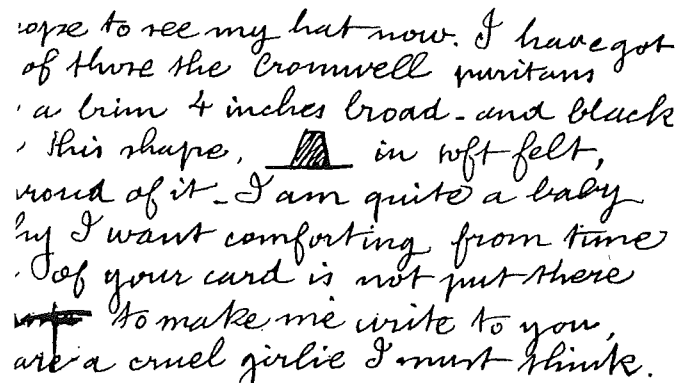 to see my hat now. I have got
of those the Cromwell puritans
a brim 4 inches broad - and black
this shape, in soft felt,
of it - I am quite a baby
I want comforting from time
of your card is not put there
to make me write to you,
are a cruel girlie I must think.